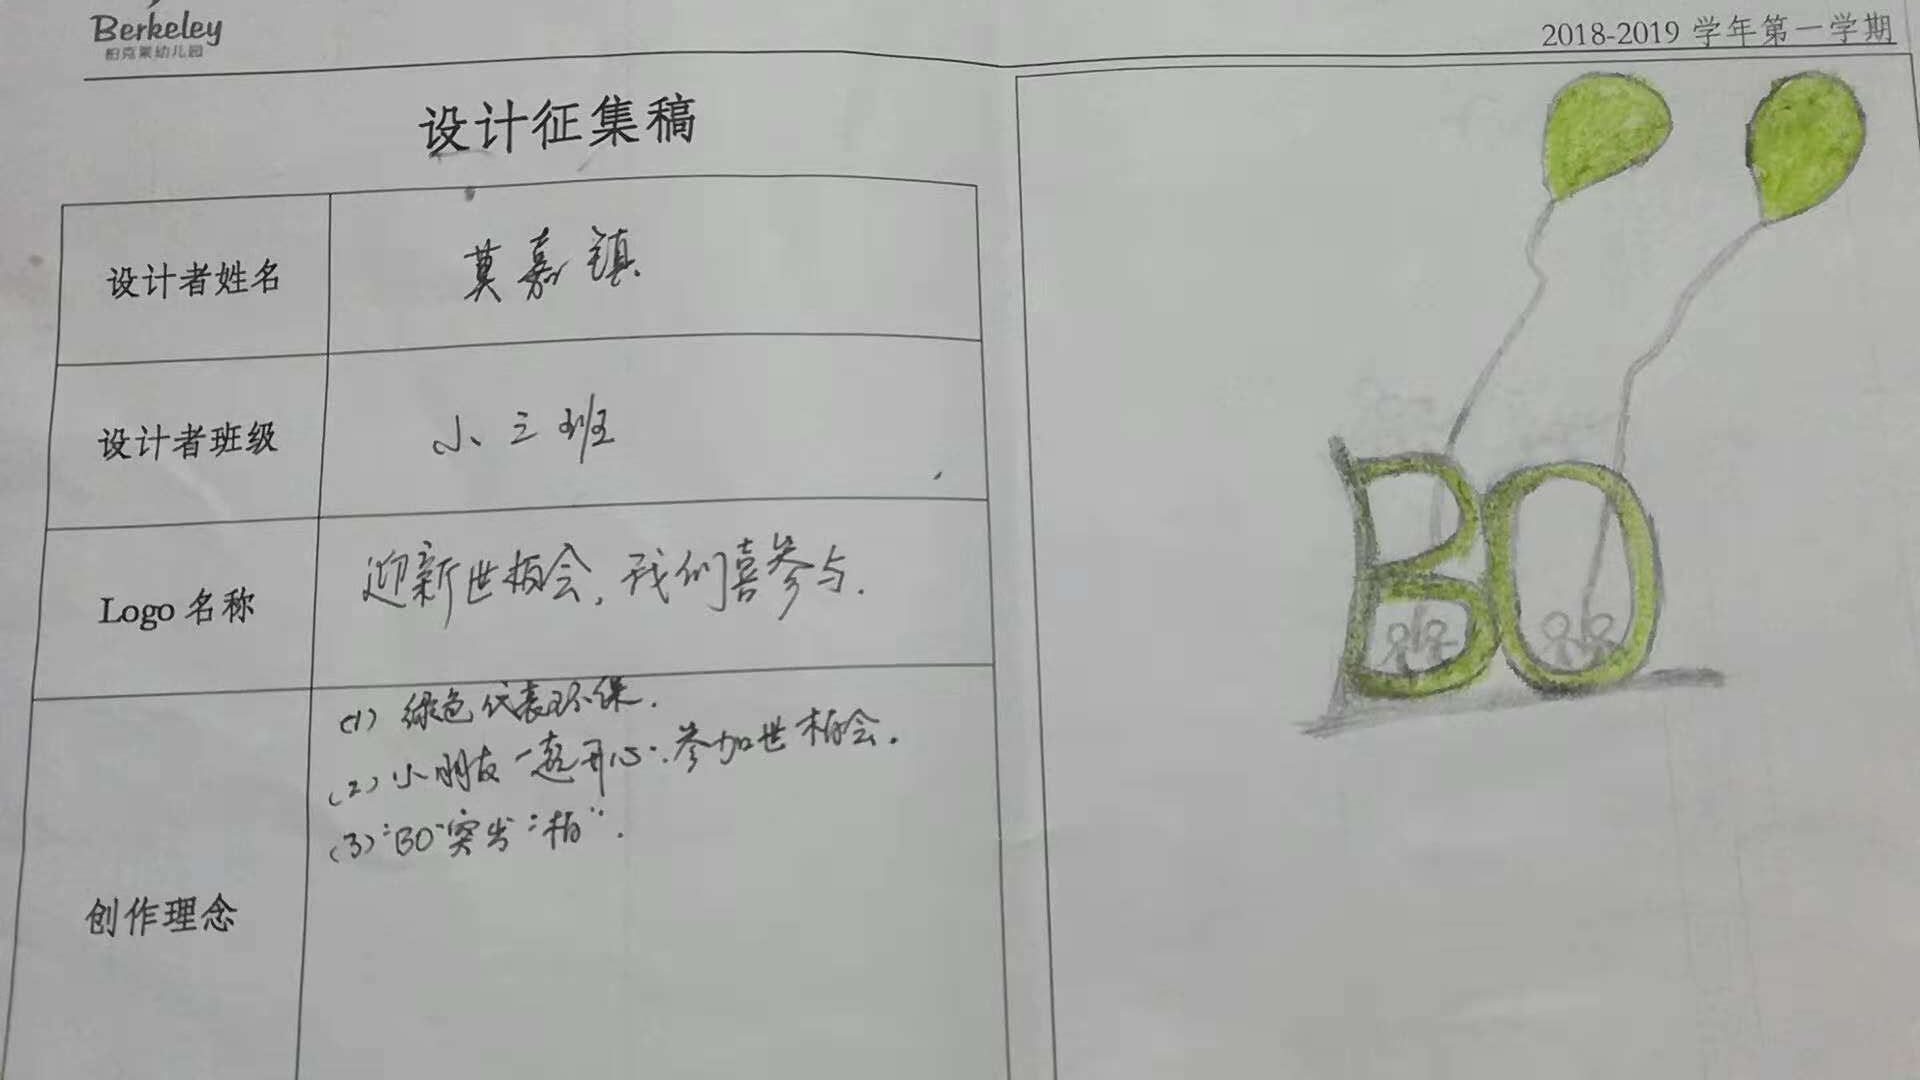 Berkeley
柏克莱幼儿园
2018-2019 学年第一学期
设计征集稿
设计者姓名
莫嘉镇
设计者班级
小三班
Logo 名称
迎新世柏会,我们喜参与.
创作理念
(1) 绿色代表环保.
(2) 小朋友一起开心.参加世柏会.
(3) "BO"突出"柏".
BO